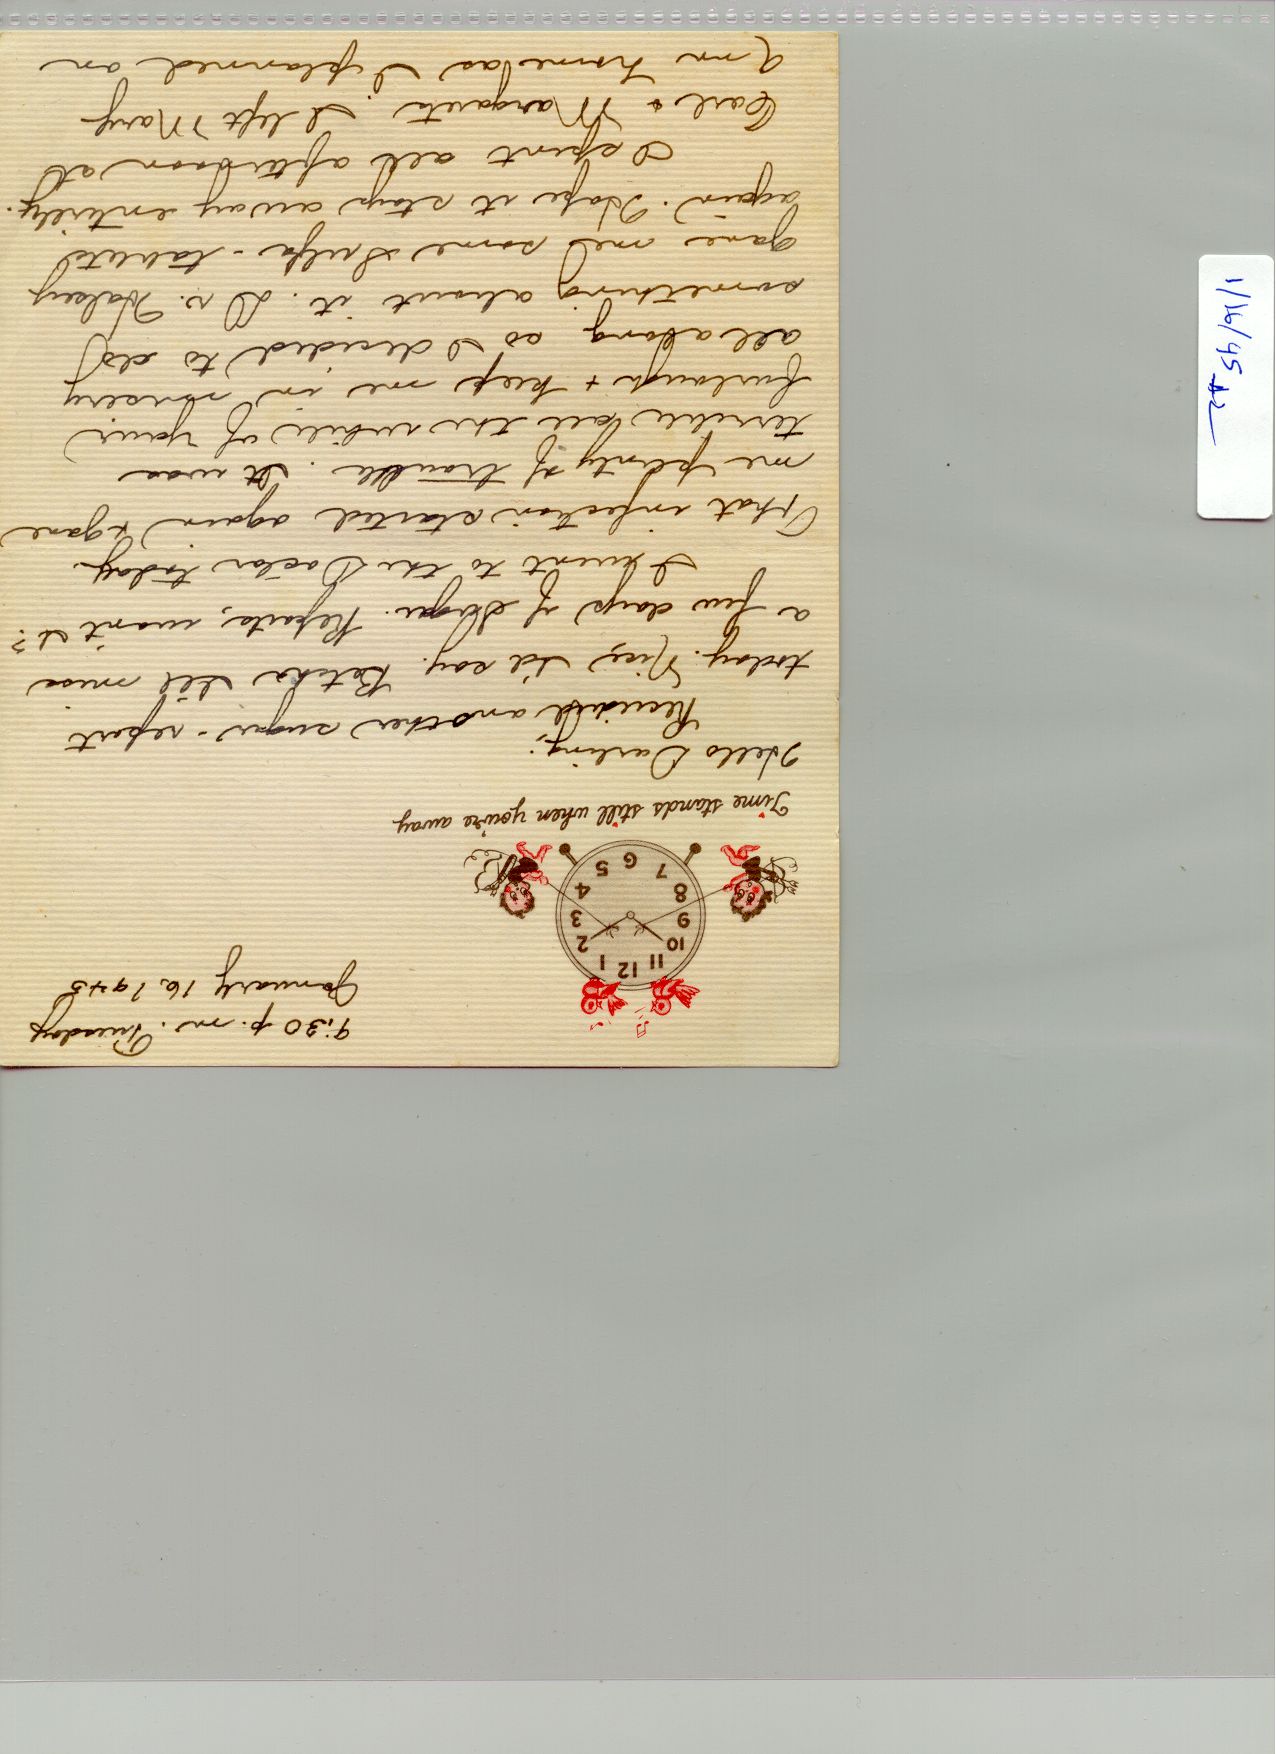 9:30 p.m. Tuesday
January 16, 1945
12
11
1
10
2
9
3
8
4
7
6
5
Time stands still when you're away
Hello Darling;
Received another sugar-report
today. Nice, I'd say. Betcha I'll miss
a few days of Sugar Reports, won't I?
I went to the Doctor today.
That infection started again & gave
me plenty of trouble. It was
terrible all the while of your
furlough & kept me in misery
all along so I decided to do
something about it. Dr. Halsey
gave me some Sulfa-tablets
again. Hope it stays away entirely.
I spent all afternoon at
Carl & Margaret's. I left Mary
Ann home as I planned on
1/16/45 #2